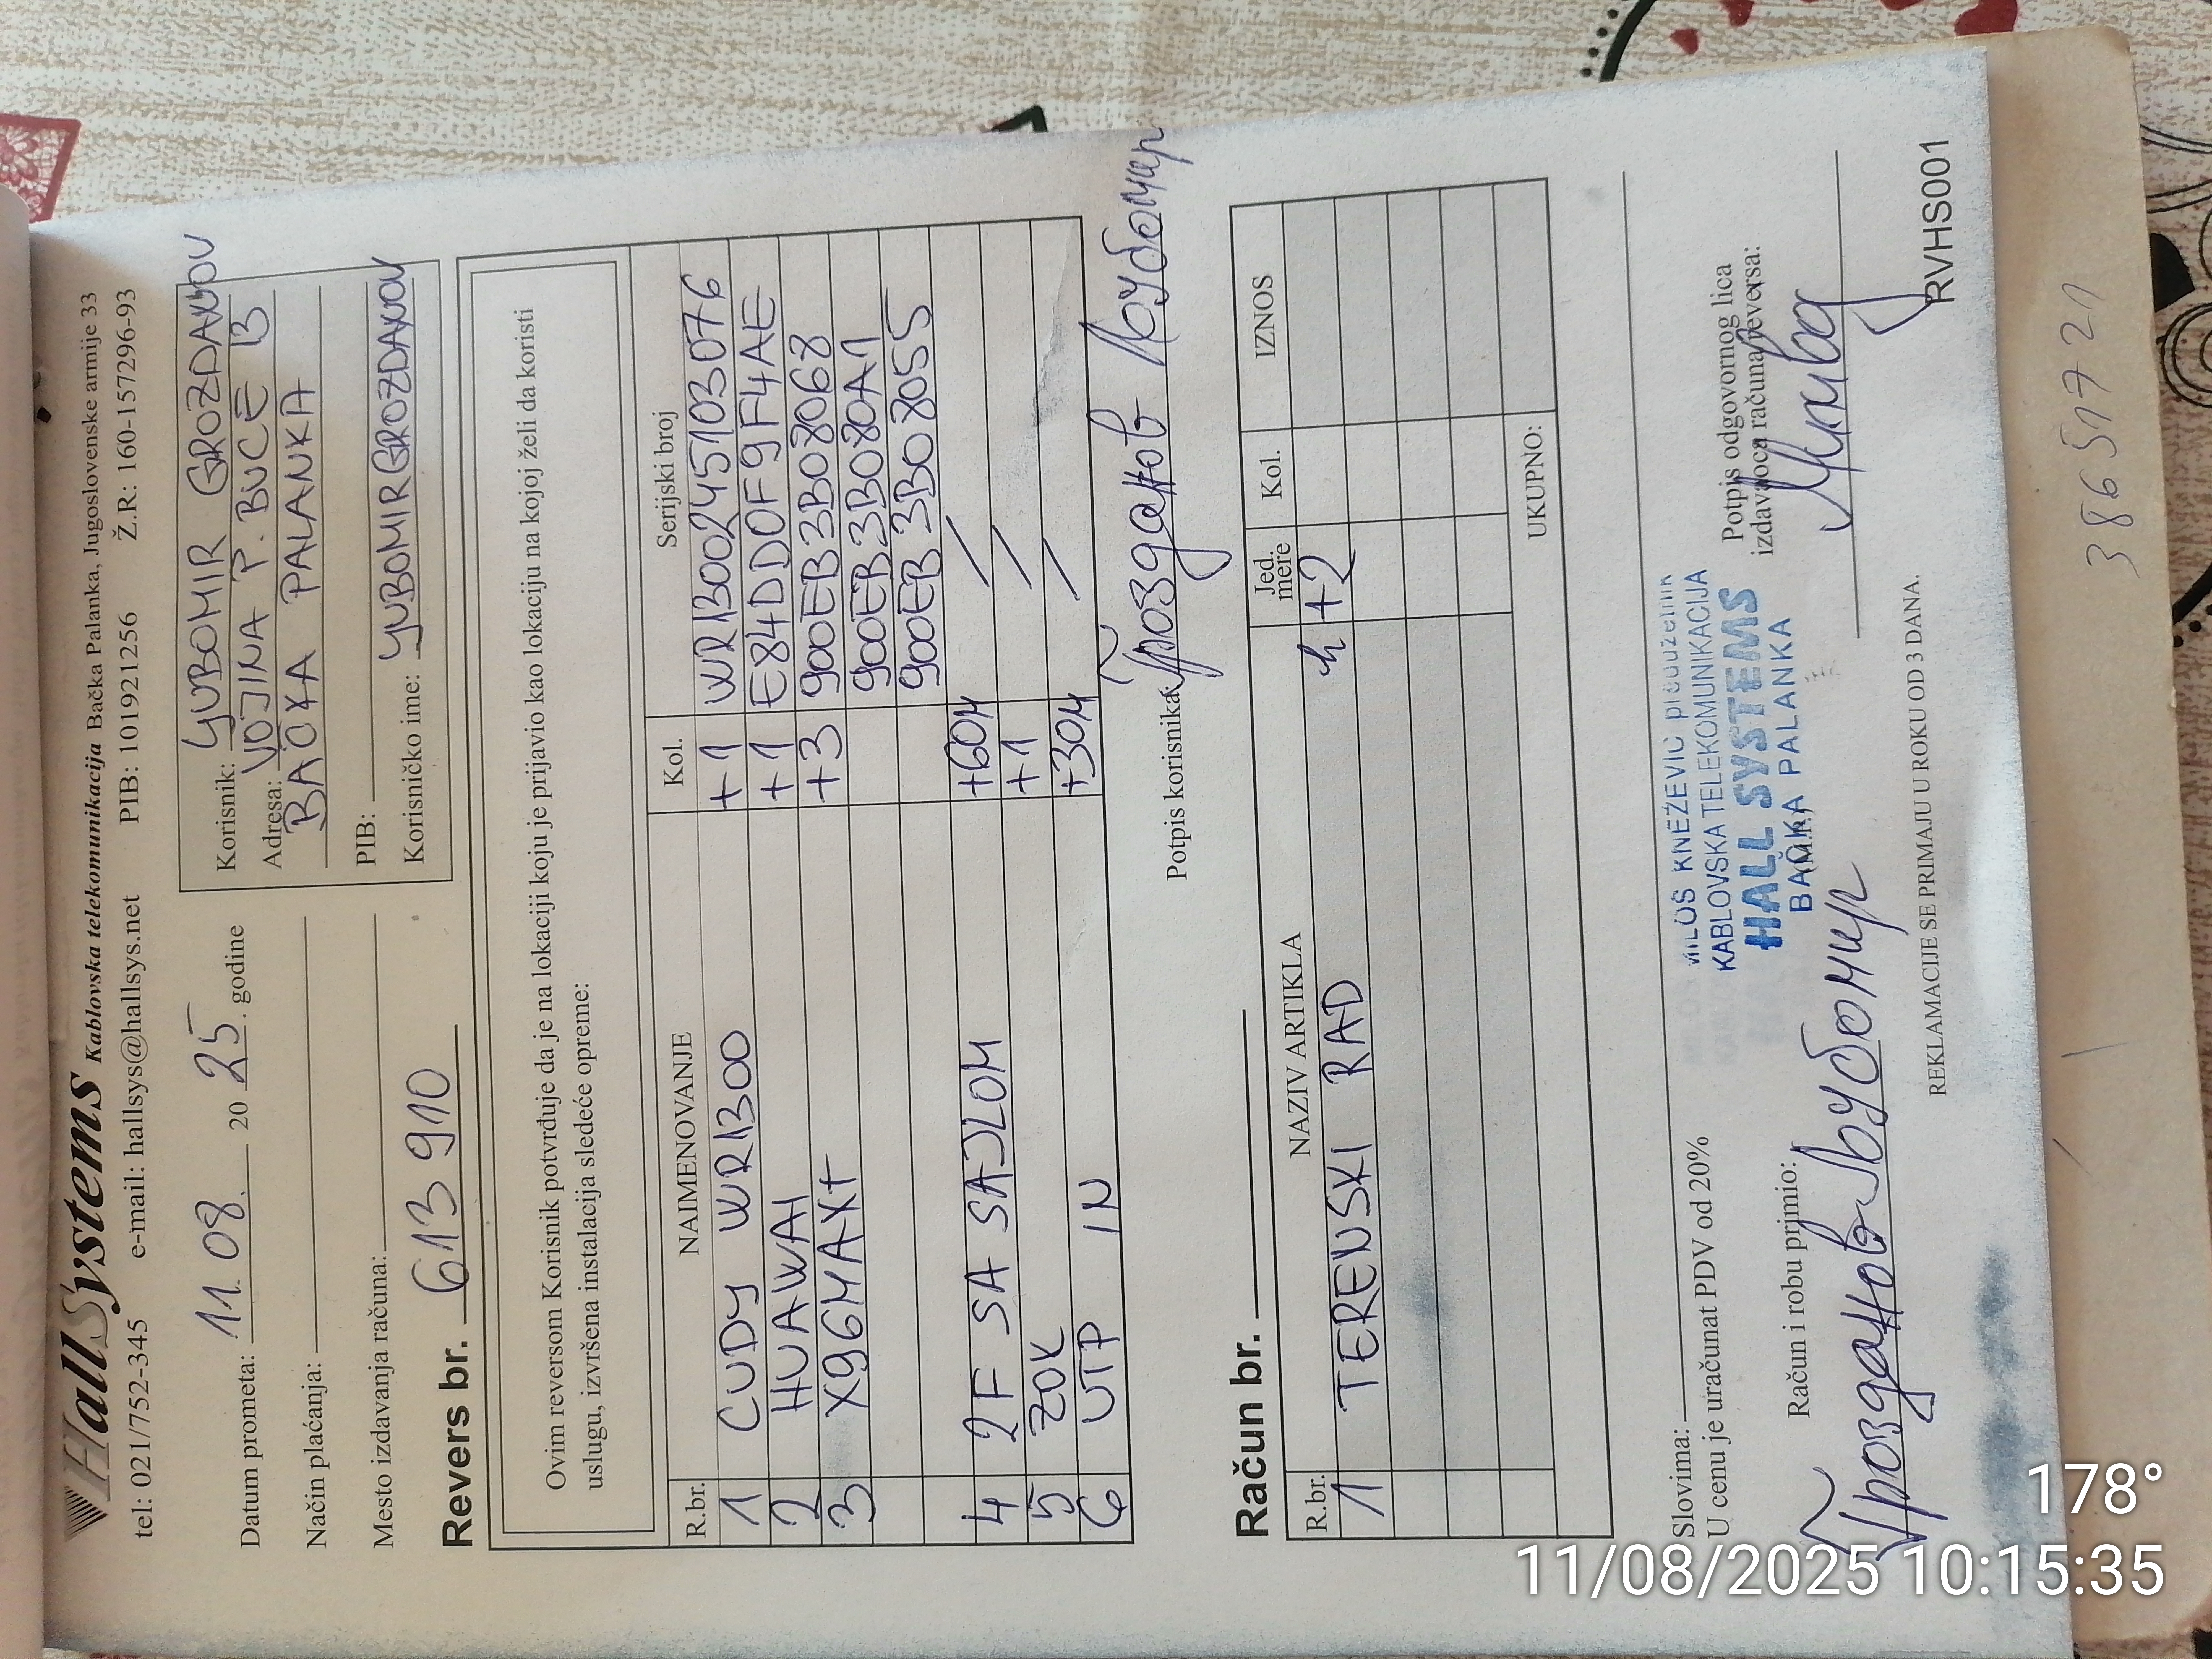 HallSystems Kablovska telekomunikacija Bačka Palanka, Jugoslovenske armije 33
tel: 021/752-345 e-mail: hallsys@hallsys.net PIB: 101921256 Ž.R: 160-157296-93
Datum prometa: 11.08. 20 25. godine
Način plaćanja:
Mesto izdavanja računa:
Korisnik: LJUBOMIR GROZDANOV
Adresa: VOJINA P. BUCE 13
BAČKA PALANKA
PIB:
Korisničko ime: LJUBOMIRGROZDANOV
Revers br. 613 910
Ovim reversom Korisnik potvrđuje da je na lokaciji koju je prijavio kao lokaciju na kojoj želi da koristi
uslugu, izvršena instalacija sledeće opreme:
R.br. NAIMENOVANJE Kol. Serijski broj
1 CUDY WR1300 +1 WR1300245103076
2 HUAWAI +1 E84DDOF9F4AE
3 X96MAX+ +3 900EB3B08068
900EB3B080A1
900EB3B08055
4 2F SA SAJLOM +60M /
5 ZOK +1 /
6 UTP IN +30M /
Potpis korisnika: Грозданов Љубомир
Račun br.
R.br. NAZIV ARTIKLA Jed. mere Kol. IZNOS
1 TERENSKI RAD h +2
UKUPNO:
Slovima:
U cenu je uračunat PDV od 20%
MILOŠ KNEŽEVIĆ preduzetnik
KABLOVSKA TELEKOMUNIKACIJA
HALL SYSTEMS
BAČKA PALANKA
Račun i robu primio:
Грозданов Љубомир
Potpis odgovornog lica
izdavaoca računa/reversa:
REKLAMACIJE SE PRIMAJU U ROKU OD 3 DANA.
RVHS001
38651721
178°
11/08/2025 10:15:35